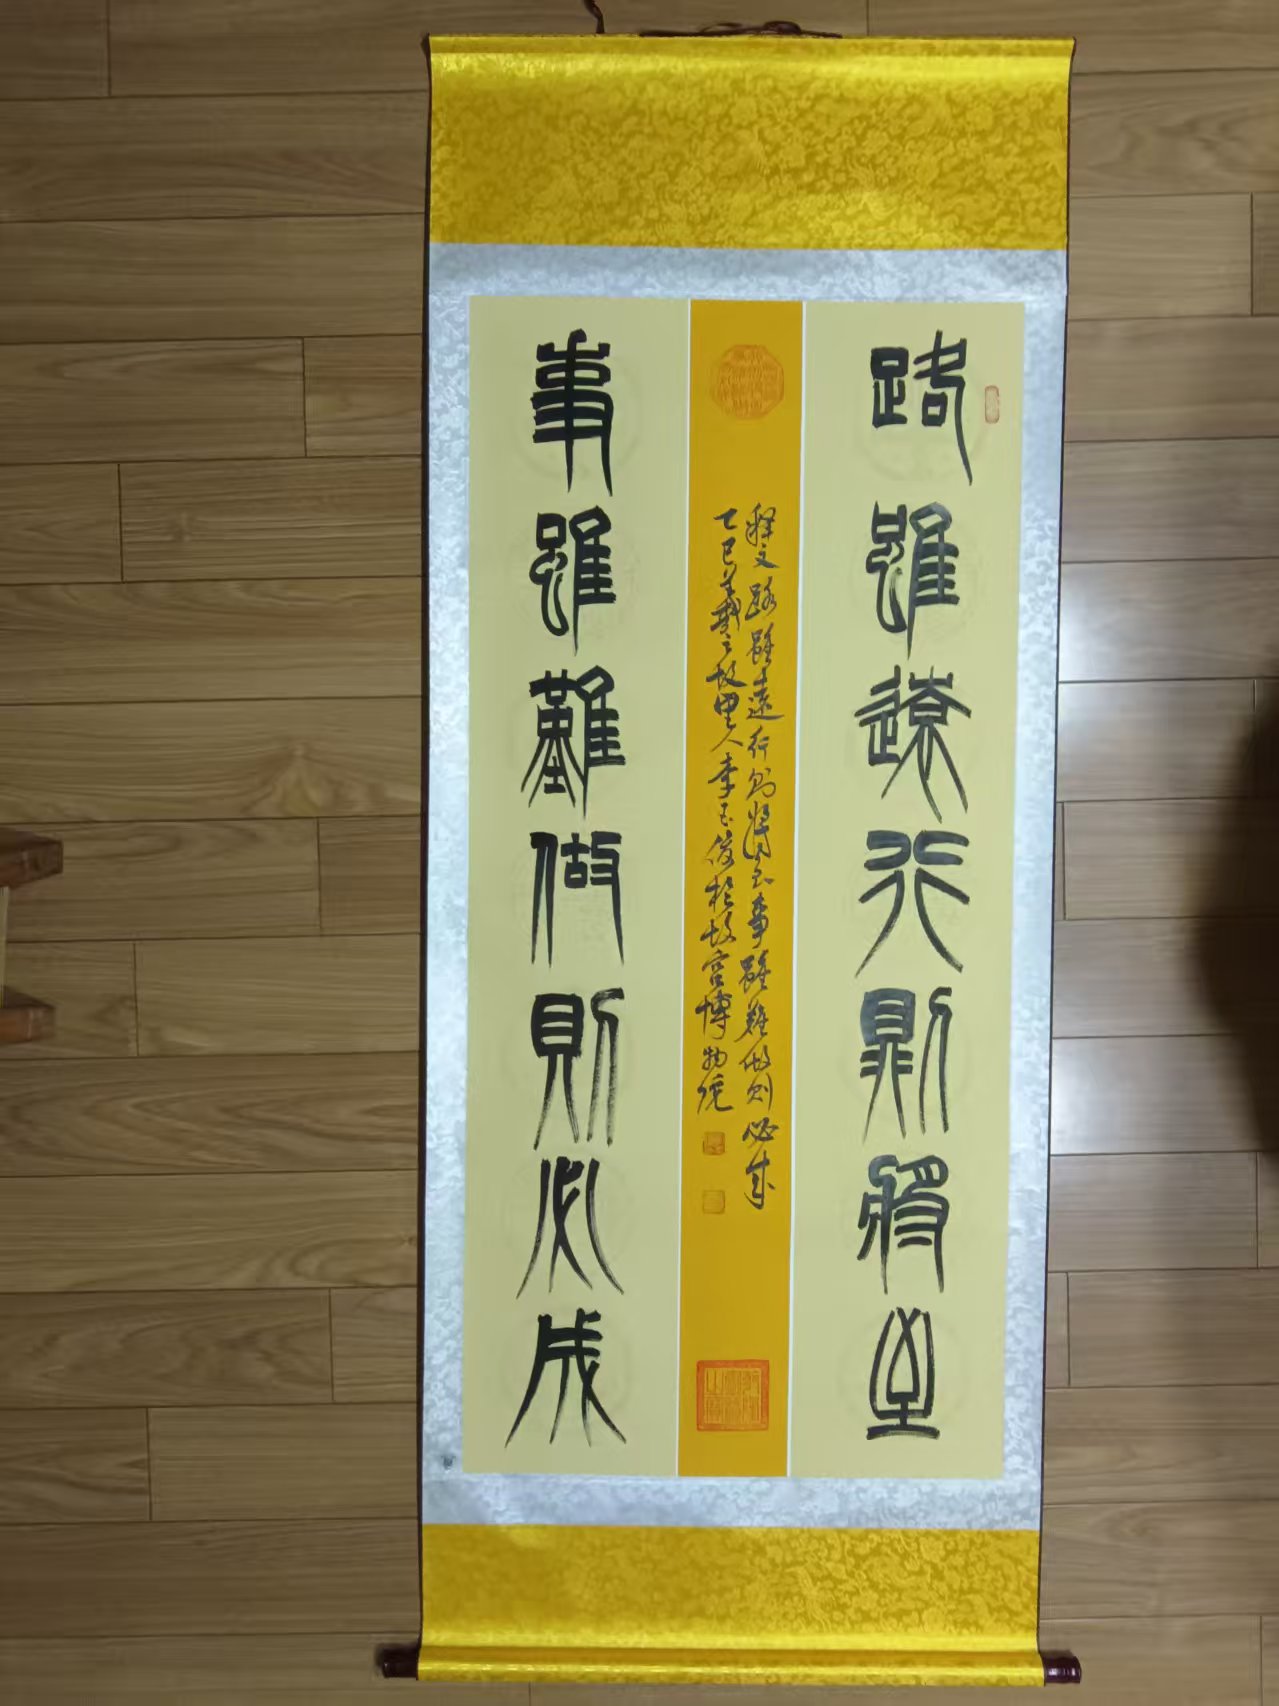 路雖遠行則將至
釋文路雖遠行則將至事雖難做則必成
乙巳羲之故里人李玉俊於故宫博物院
事雖難做則必成